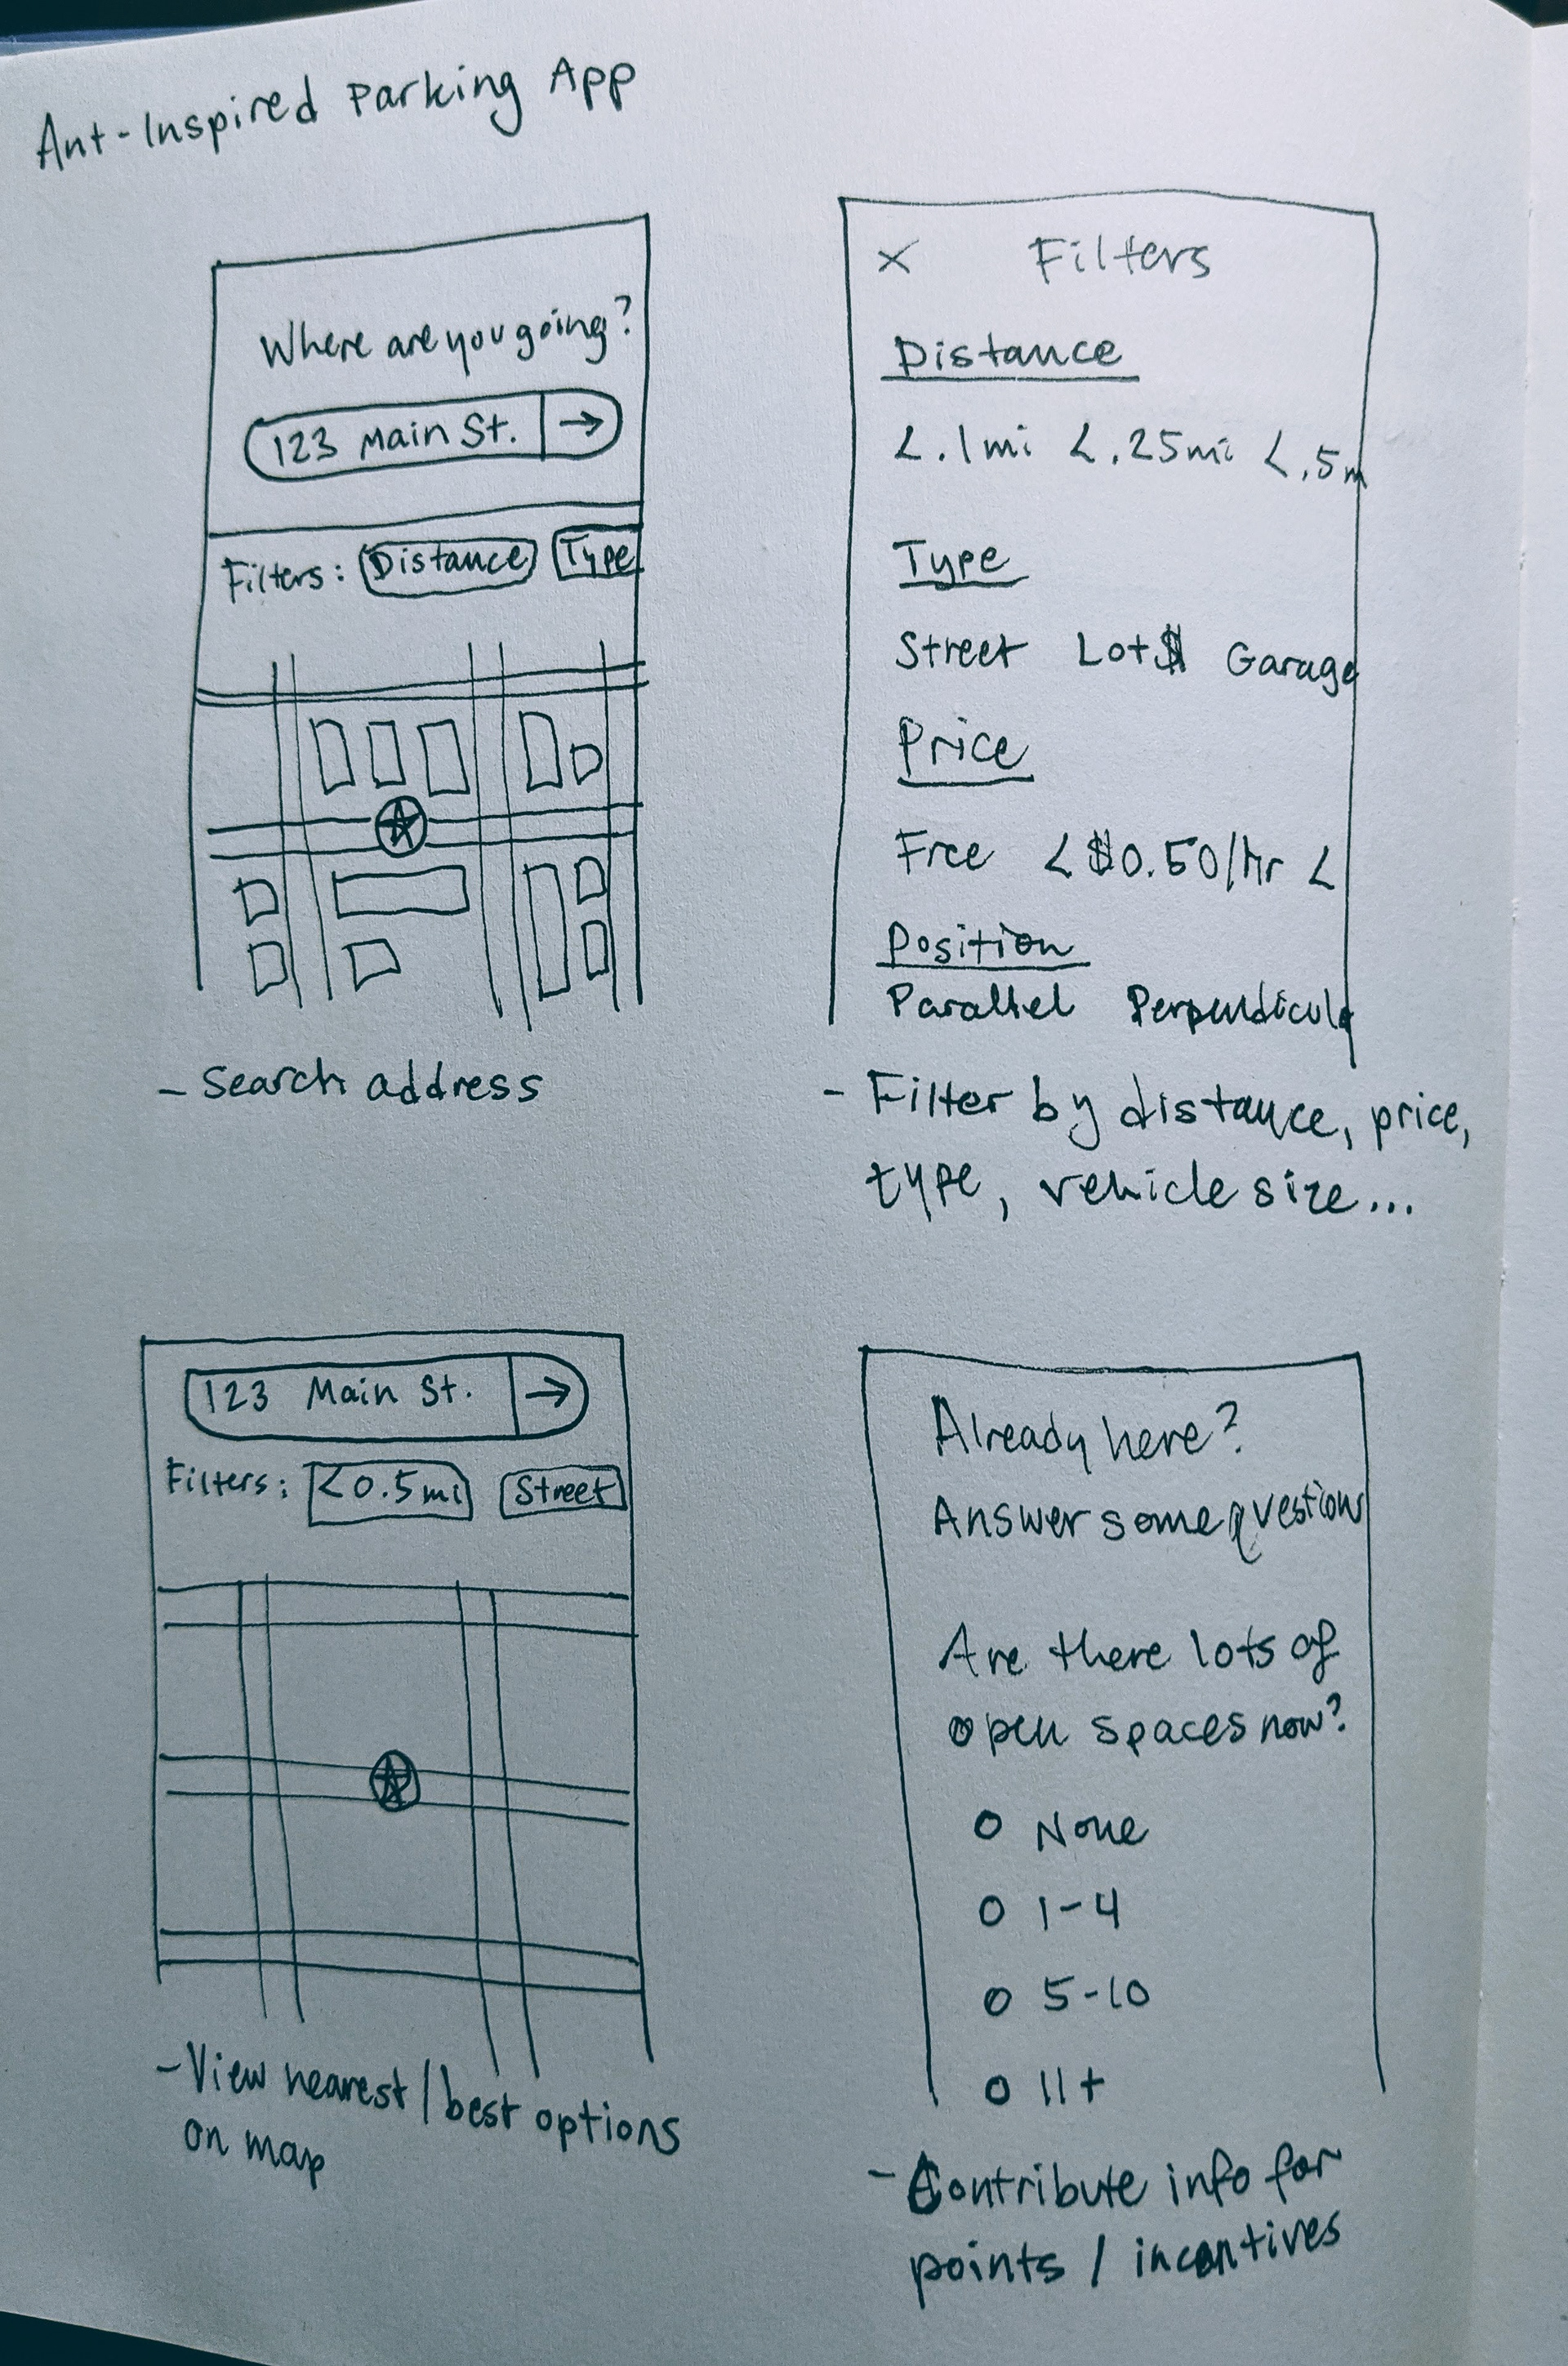 Ant-Inspired Parking App
Where are you going?
123 Main St. →
Filters: Distance Type
- Search address
X Filters
Distance
<.1mi <.25mi <.5m
Type
Street Lot$ Garage
Price
Free <$0.50/hr <
Position
Parallel Perpendicula
- Filter by distance, price,
type, vehicle size...
123 Main St. →
Filters: <0.5mi Street
- View nearest/best options
on map
Already here?
Answer some questions
Are there lots of
open spaces now?
O None
O 1-4
O 5-10
O 11+
- Contribute info for
points / incentives